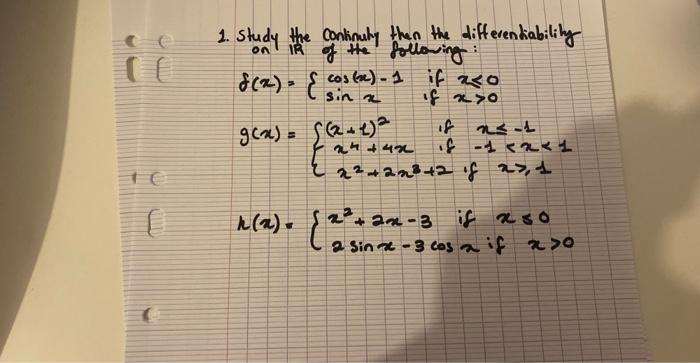 1. Study the Continuity then the differentiability
on IR of the following:
f(x) = { cos(x) - 1 if x ≤ 0
sin x if x > 0
g(x) = { (x+1)² if x ≤ -1
x⁴ + 4x if -1 < x < 1
x² + 2x³ + 2 if x ≥ 1
h(x) = { x² + 2x - 3 if x ≤ 0
2 sin x - 3 cos x if x > 0